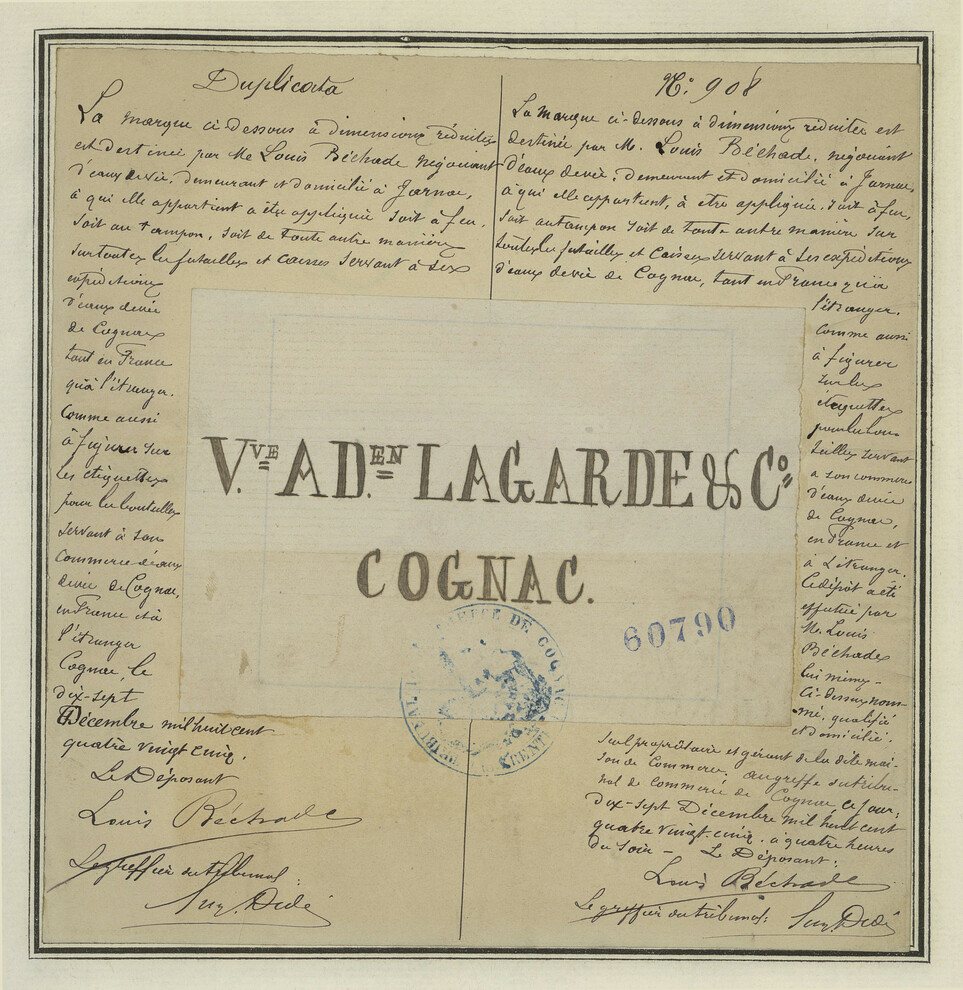 Duplicata
La marque ci-dessous à dimensions réduites
est destinée par Me Louis Béchade négociant
d'eaux de vie, demeurant et domicilié à Jarnac,
à qui elle appartient a être appliquée soit à feu,
soit au tampon, soit de toute autre manière
sur toutes les futailles et caisses servant à ses
expéditions
d'eaux de vie
de Cognac
tant en France
qu'à l'étranger.
Comme aussi
à figurer sur
les étiquettes
pour les bouteilles
servant à son
commerce d'eaux
de vie de Cognac,
en France et à
l'étranger
Cognac, le
dix-sept
Décembre mil huit cent
quatre vingt cinq.
Le Déposant
Louis Béchade
Le greffier du tribunal:
N.° 908
La marque ci-dessous à dimensions réduites est
destinée par M. Louis Béchade, négociant
d'eaux de vie, demeurant et domicilié à Jarnac,
à qui elle appartient, à être appliquée, soit à feu,
soit au tampon soit de toute autre manière sur
toutes les futailles et caisses servant à ses expéditions
d'eaux de vie de Cognac, tant en France qu'à
l'étranger.
Comme aussi
à figurer
sur les
étiquettes
pour les bou-
teilles servant
a son commerce
d'eaux de vie
de Cognac,
en France et
à l'étranger.
Ce dépôt a été
effectué par
M. Louis
Béchade
lui même -
Ci-dessus nom-
mé, qualifié
et domicilié.
seul propriétaire et gérant de la dite mai-
son de Commerce, au greffe du tribu-
nal de commerce de Cognac ce jour,
dix-sept Décembre mil huit cent
quatre vingt-cinq, à quatre heures
du soir - Le Déposant:
Louis Béchade
Le greffier du tribunal:
V.VE AD.EN LAGARDE & Co
COGNAC.
60790